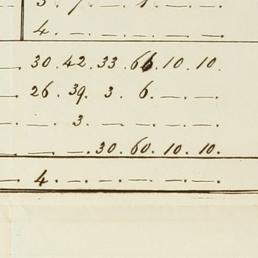 3. 7. — 1. — —
4. — — — — —
30. 42. 33. 66. 10. 10.
26. 39. 3. 6. — —
— 3. — — — —
— — 30. 60. 10. 10.
4. — — — — —